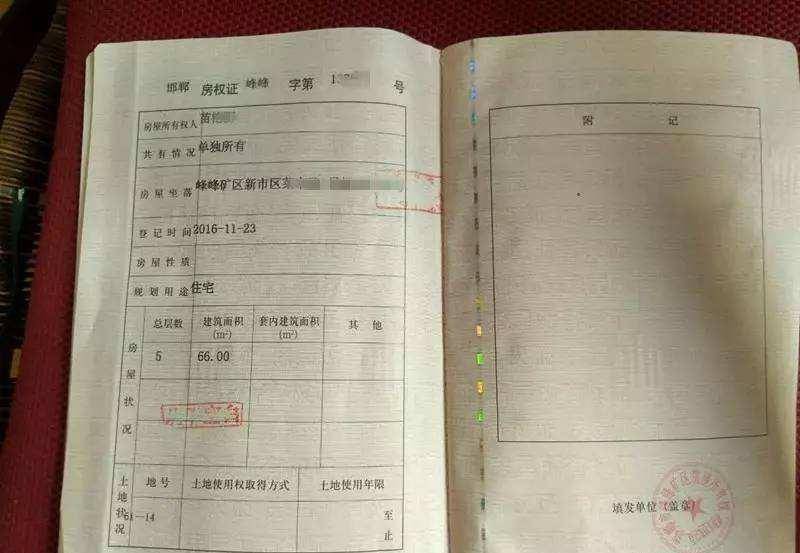 邯郸 房权证 峰峰 字第 13 号
房屋所有权人 苗
共有情况 单独所有
房屋坐落 峰峰矿区新市区
登记时间 2016-11-23
房屋性质
规划用途 住宅
房屋状况
总层数 建筑面积(m²) 套内建筑面积(m²) 其他
5 66.00
土地状况
地号 土地使用权取得方式 土地使用年限
61-14 至
止
附记
填发单位(盖章)